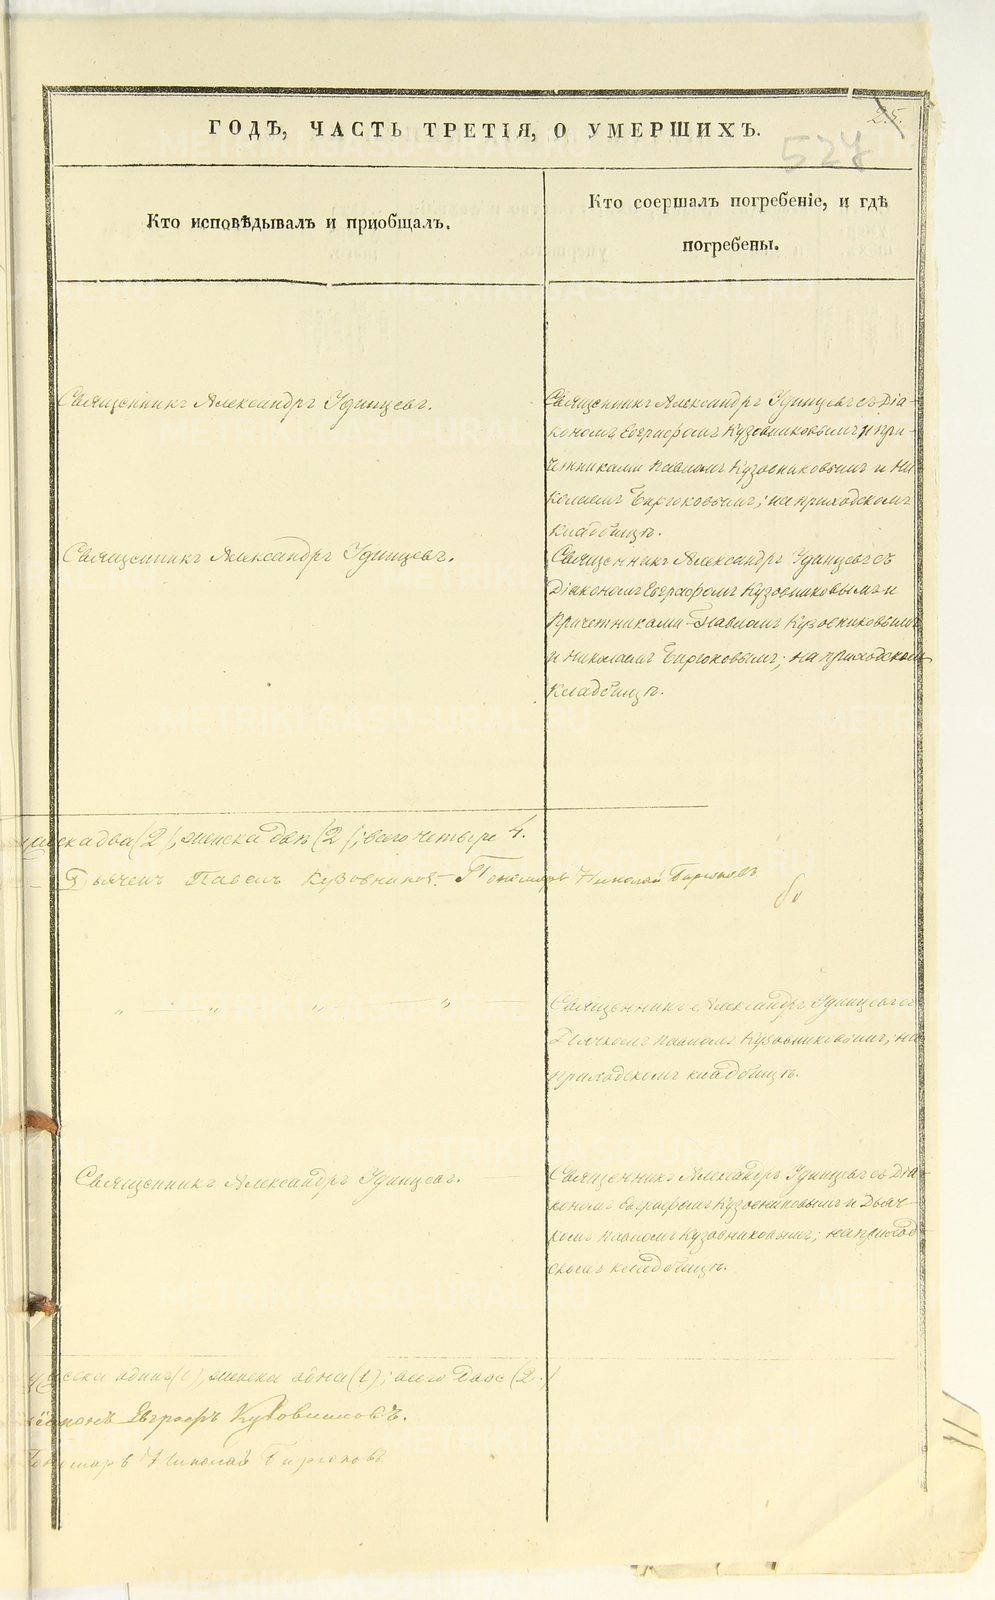 25.
ГОДЪ, ЧАСТЬ ТРЕТІЯ, О УМЕРШИХЪ.
527
Кто исповѣдывалъ и приобщалъ.
Кто соершалъ погребеніе, и гдѣ
погребены.
Священникъ Александръ Удинцевъ.
Священникъ Александръ Удинцевъ съ Діа-
кономъ Евграфомъ Кузовниковымъ и при-
четниками Павломъ Кузовниковымъ и Ни
колаемъ Бирюковымъ; на приходскомъ
кладбищѣ.
Священникъ Александръ Удинцевъ.
Священникъ Александръ Удинцевъ съ
Діакономъ Евграфомъ Кузовниковымъ и
Причетниками Павломъ Кузовниковымъ
и Николаемъ Бирюковымъ; на приходскомъ
кладбищѣ.
мужеска два (2), женска двѣ (2); всего четыре 4.
Дьячекъ Павелъ Кузовниковъ. Пономарь Николай Бирюковъ
„ — „ — „ — „ —
Священникъ Александръ Удинцевъ съ
Дьячкомъ Павломъ Кузовниковымъ; на
приходскомъ кладбищѣ.
Священникъ Александръ Удинцевъ.
Священникъ Александръ Удинцевъ съ Діа-
кономъ Евграфомъ Кузовниковымъ и Дьяч-
комъ Павломъ Кузовниковымъ; на приход-
скомъ кладбищѣ.
мужеска одинъ (1), женска одна (1); всего Двое (2.)
Діаконъ Евграфъ Кузовниковъ.
Пономарь Николай Бирюковъ
METRIKI.GASO-URAL.RU